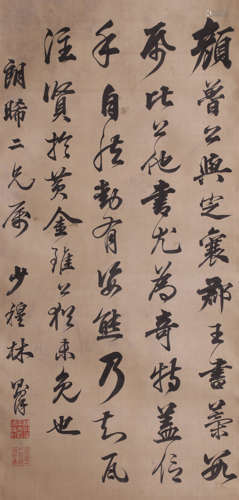 顏魯公與定襄郡王書藁數
紙比公他書尤為奇特蓋信
手自然動有姿態乃知瓦
注賢於黃金雖公猶未免也
朗晞二兄屬 少穆林則徐